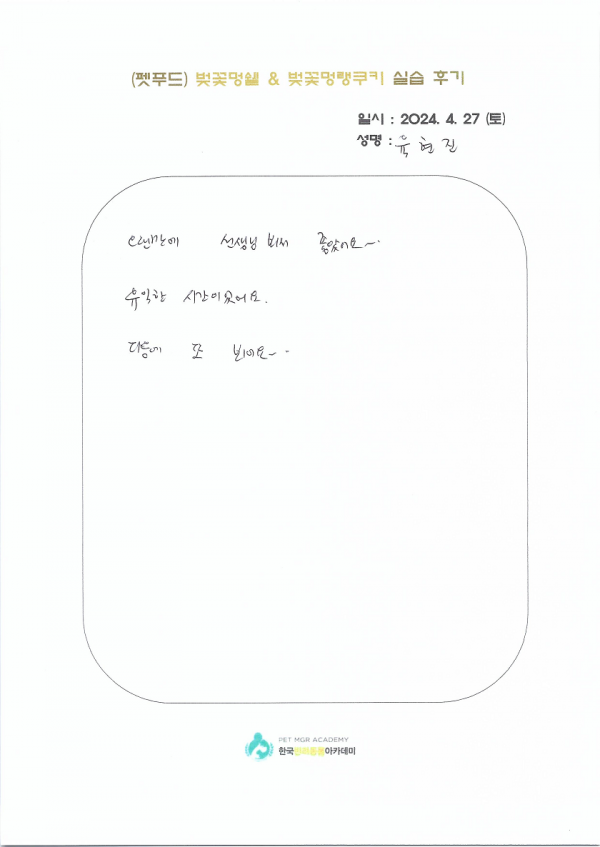 (펫푸드) 벚꽃멍쉘 & 벚꽃멍랭쿠키 실습 후기
일시 : 2024. 4. 27 (토)
성명 : 육현진
오랜만에 선생님 뵈서 좋았어요~
유익한 시간이었어요.
다음에 또 뵈어요~
PET MGR ACADEMY
한국반려동물아카데미